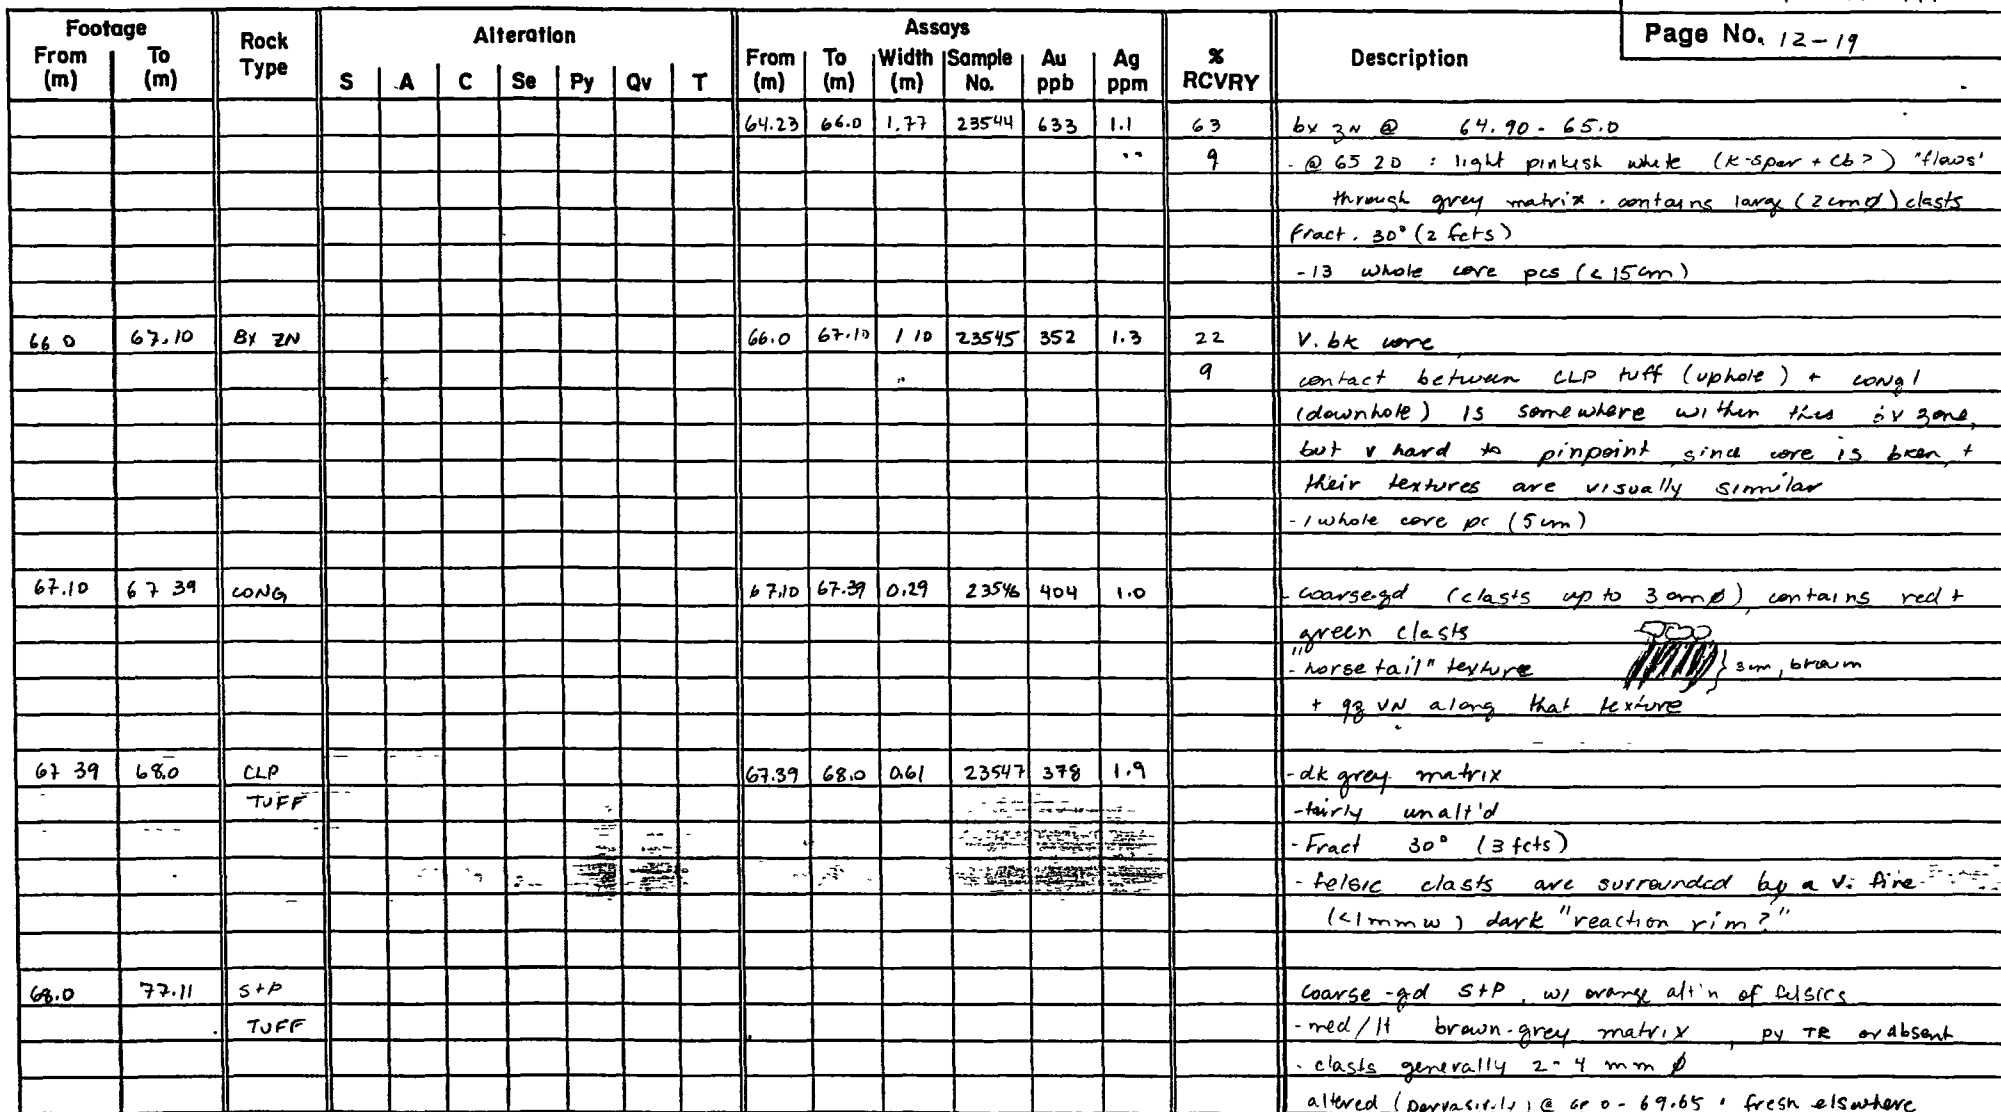 Page No. 12-19
Footage Rock Type Alteration Assays % RCVRY Description
From (m) To (m) S A C Se Py Qv T From (m) To (m) Width (m) Sample No. Au ppb Ag ppm
64.23 66.0 1.77 23544 633 1.1 63 bx zn @ 64.90 - 65.0
9 - @ 65 20 : light pinkish white (k-spar + cb?) "flows'
through grey matrix. contains large (2cmø) clasts
Fract. 30° (2 fcts)
-13 whole core pcs (<15cm)
66 0 67.10 BX ZN 66.0 67.10 1 10 23545 352 1.3 22 V. bk core
9 contact between CLP tuff (uphole) + congl
(downhole) is somewhere within this bx zone,
but v hard to pinpoint since core is bken, +
their textures are visually similar
-1 whole core pc (5cm)
67.10 67 39 CONG 67.10 67.39 0.29 23546 404 1.0 - coarse-gd (clasts up to 3cmø), contains red +
green clasts
- "horse tail" texture } 3cm, brown
+ qz VN along that texture
67 39 68.0 CLP 67.39 68.0 0.61 23547 378 1.9 -dk grey matrix
TUFF -fairly unalt'd
- Fract 30° (3 fcts)
- felsic clasts are surrounded by a v. fine
(<1mm w) dark "reaction rim?"
68.0 77.11 S+P coarse-gd S+P, w/ orange alt'n of felsics
TUFF -med/lt brown-grey matrix, py TR or absent
- clasts generally 2-4 mm ø
altered (pervasively) @ - 69.65 fresh elswhere